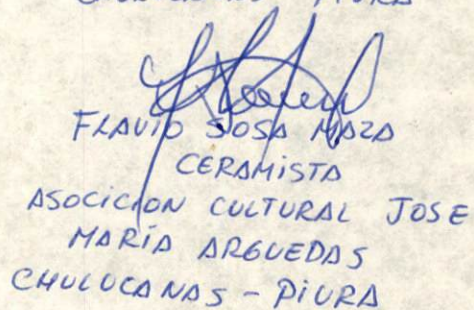 PIURA
FLAVIO SOSA MAZA
CERAMISTA
ASOCICION CULTURAL JOSE
MARÍA ARGUEDAS
CHULUCANAS - PIURA